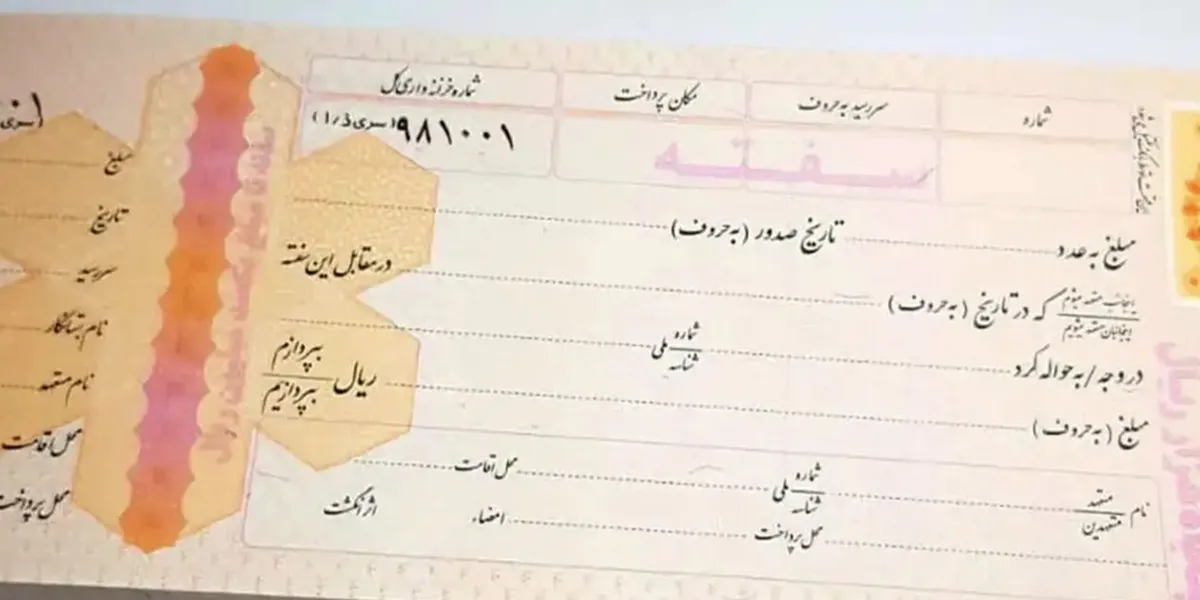 شماره
سررسید به حروف
مکان پرداخت
شماره خزانه داری کل
سفته
۹۸۱۰۰۱ (سری 1/3)
مبلغ به عدد
تاریخ صدور (به حروف)
اینجانب متعهد میشوم
اینجانبان متعهد میشویم
که در تاریخ (به حروف)
در مقابل این سفته
در وجه / به حواله کرد
شماره
شناسه
ملی
مبلغ (به حروف)
ریال
بپردازم
بپردازیم
نام
متعهد
متعهدین
شماره
شناسه
ملی
محل اقامت
محل پرداخت
امضاء
اثر انگشت
مبلغ
تاریخ
سررسید
نام بستانکار
نام متعهد
محل اقامت
محل پرداخت